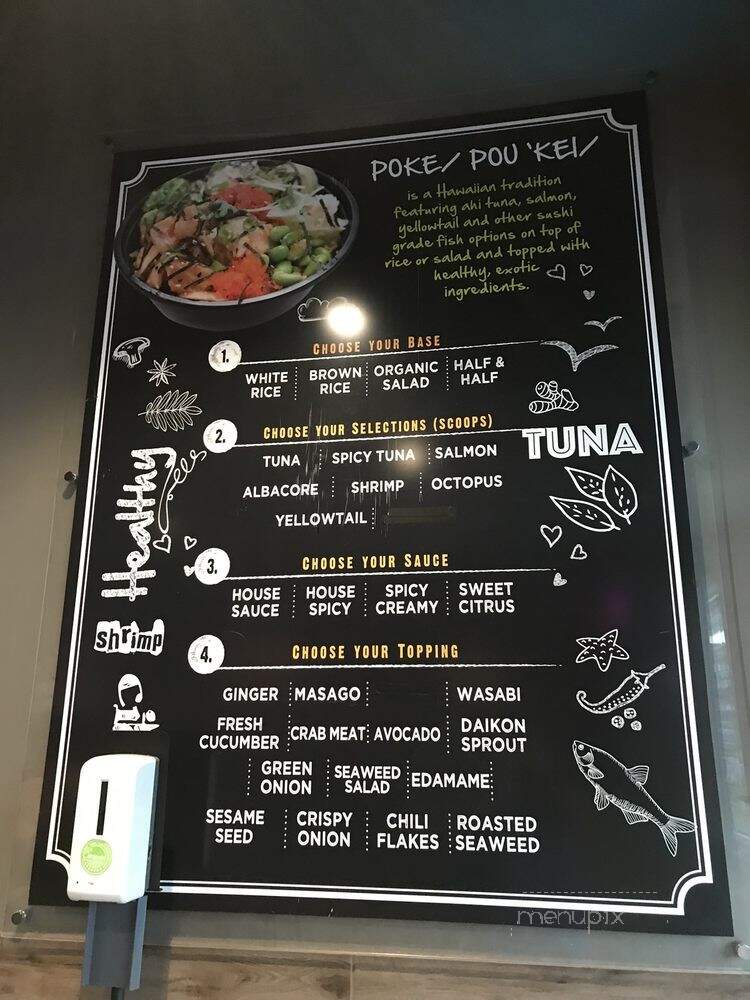 POKE/ POU 'KEI/
is a Hawaiian tradition
featuring ahi tuna, salmon,
yellowtail and other sushi
grade fish options on top of
rice or salad and topped with
healthy, exotic
ingredients.
1. CHOOSE YOUR BASE
WHITE RICE
BROWN RICE
ORGANIC SALAD
HALF & HALF
2. CHOOSE YOUR SELECTIONS (SCOOPS)
TUNA SPICY TUNA SALMON
ALBACORE SHRIMP OCTOPUS
YELLOWTAIL
TUNA
Healthy
3. CHOOSE YOUR SAUCE
HOUSE SAUCE
HOUSE SPICY
SPICY CREAMY
SWEET CITRUS
shrimp
4. CHOOSE YOUR TOPPING
GINGER MASAGO WASABI
FRESH CUCUMBER
CRAB MEAT
AVOCADO
DAIKON SPROUT
GREEN ONION
SEAWEED SALAD
EDAMAME
SESAME SEED
CRISPY ONION
CHILI FLAKES
ROASTED SEAWEED
menupix